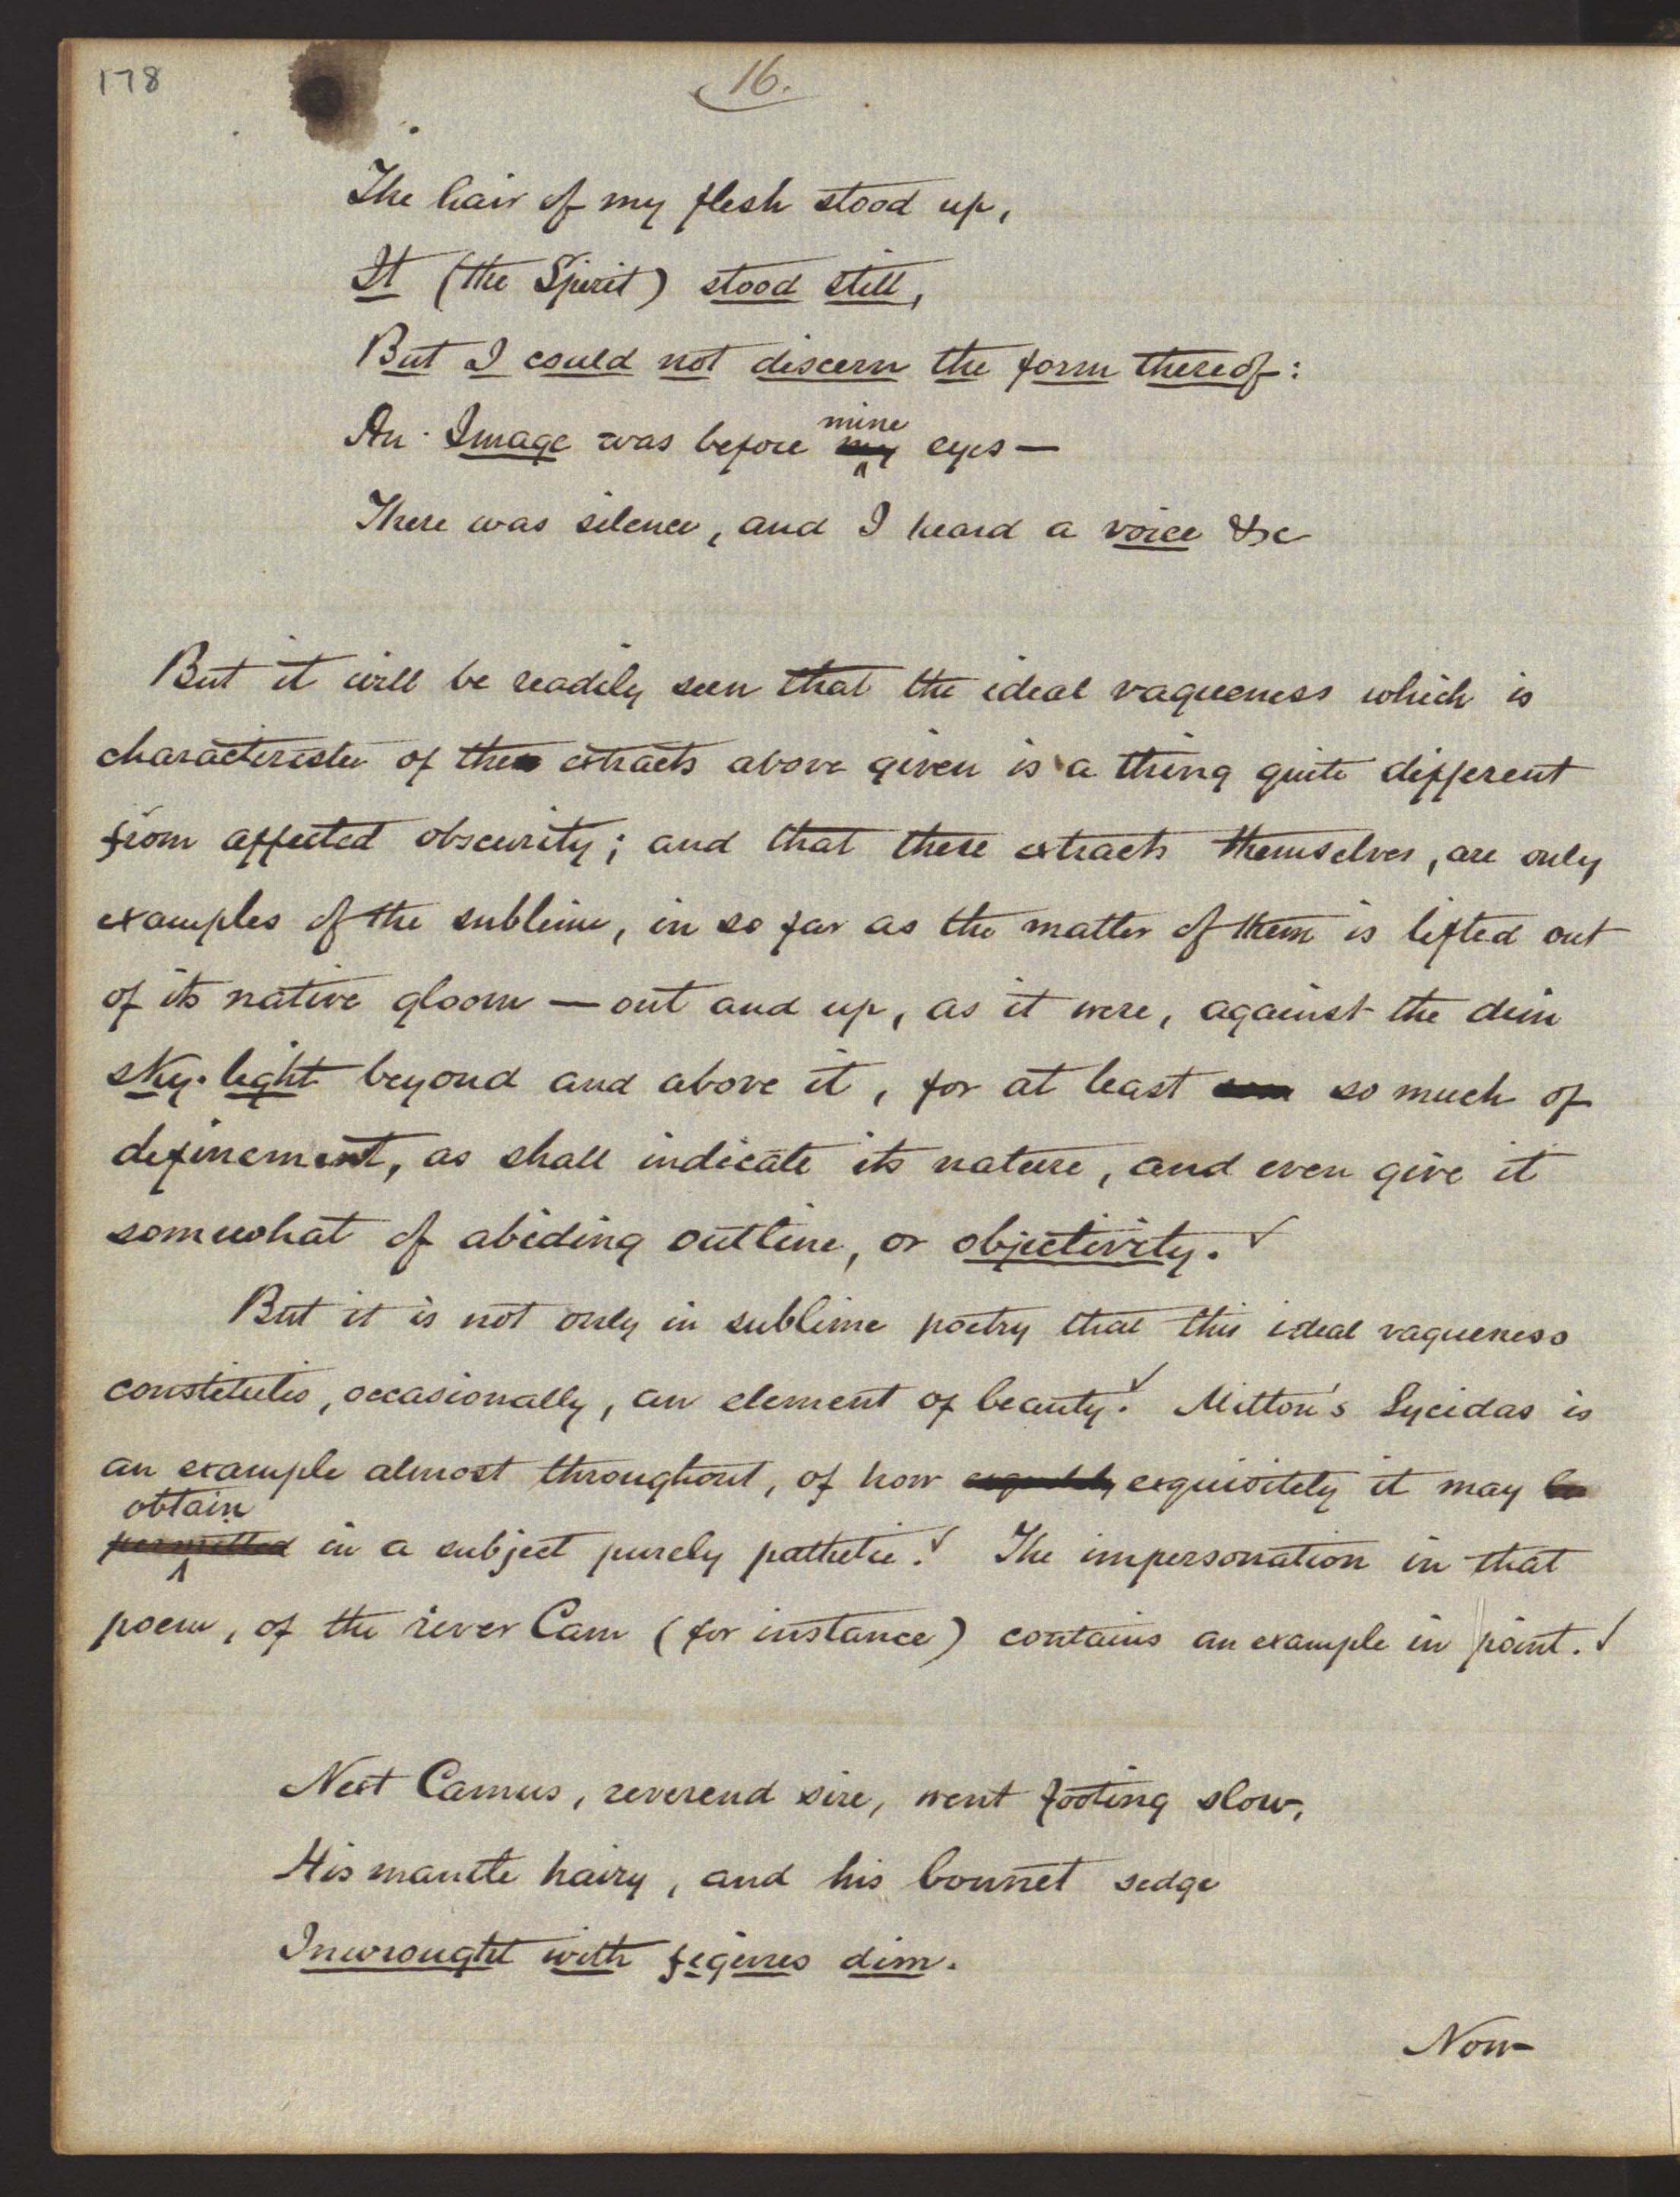 178
16.
The hair of my flesh stood up,
It (the Spirit) stood still,
But I could not discern the form thereof:
mine
An Image was before my eyes —
There was silence, and I heard a voice &c
But it will be readily seen that the ideal vagueness which is
characteristic of the extracts above given is a thing quite different
from affected obscurity; and that these extracts themselves, are only
examples of the sublime, in so far as the matter of them is lifted out
of its native gloom — out and up, as it were, against the dim
sky-light beyond and above it, for at least so much of
definement, as shall indicate its nature, and even give it
somewhat of abiding outline, or objectivity. ✓
But it is not only in sublime poetry that this ideal vagueness
constitutes, occasionally, an element of beauty. ✓ Milton's Lycidas is
an example almost throughout, of how exquisitely it may be
obtain
permitted in a subject purely pathetic. ✓ The impersonation in that
poem, of the river Cam (for instance) contains an example in point. ✓
Next Camus, reverend sire, went footing slow,
His mantle hairy, and his bonnet sedge
Inwrought with figures dim.
Now